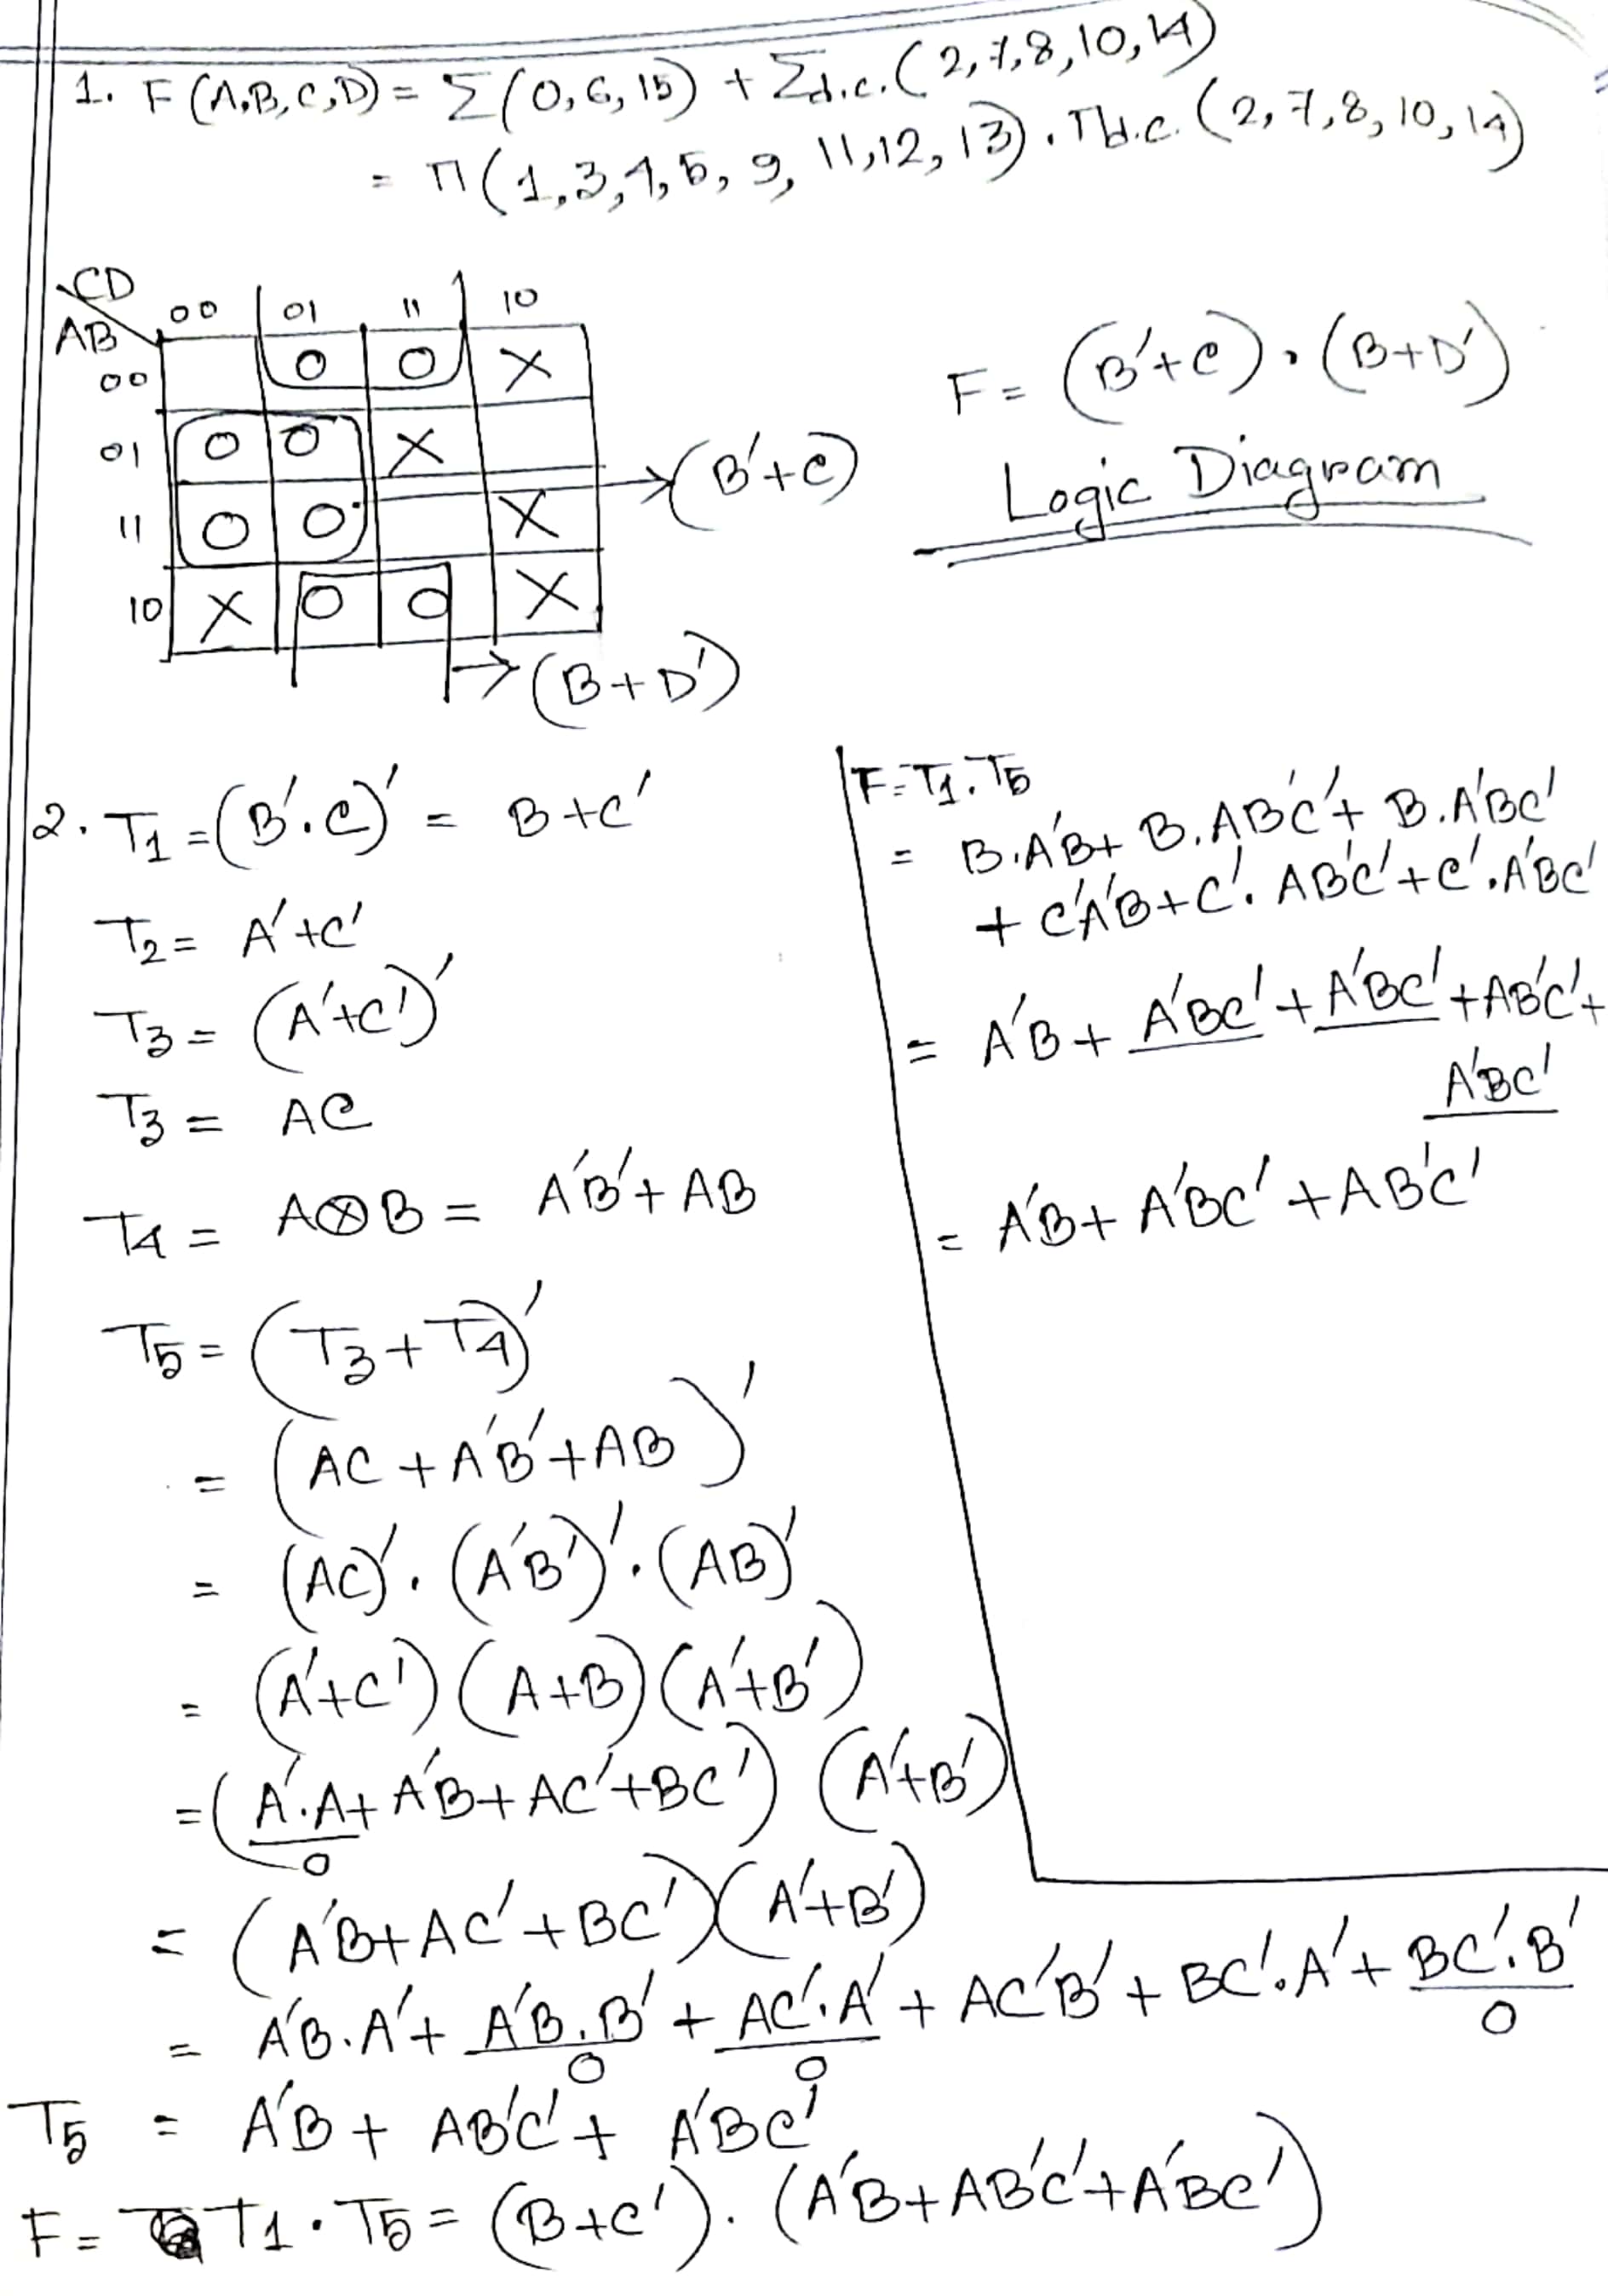 1. F(A,B,C,D) = Σ(0,6,15) + Σd.c.(2,7,8,10,14)
= π(1,3,4,5,9,11,12,13) . πd.c.(2,7,8,10,14)
CD
AB
00 01 11 10
00 0 0 X
01 0 0 X
11 0 0 X
10 X 0 0 X
→(B'+C)
→(B+D')
F = (B'+C) . (B+D')
Logic Diagram
2. T1 = (B'.C)' = B+C'
T2 = A'+C'
T3 = (A'+C')'
T3 = AC
T4 = A⊗B = A'B'+AB
T5 = (T3+T4)'
= (AC+A'B'+AB)'
= (AC)'.(A'B')'.(AB)'
= (A'+C')(A+B)(A'+B')
= (A'.A+A'B+AC'+BC') (A'+B')
0
= (A'B+AC'+BC')(A'+B')
= A'B.A'+ A'B.B' + AC'.A' + AC'B' + BC'.A'+ BC'.B'
0 0 0
T5 = A'B + AB'C' + A'BC'
F = T1.T5 = (B+C').(A'B+AB'C'+A'BC')
F=T1.T5
= B.A'B+ B.AB'C'+ B.A'BC'
+ C'A'B+C'.AB'C'+C'.A'BC'
= A'B+ A'BC'+A'BC'+AB'C'+
A'BC'
= A'B+ A'BC'+AB'C'